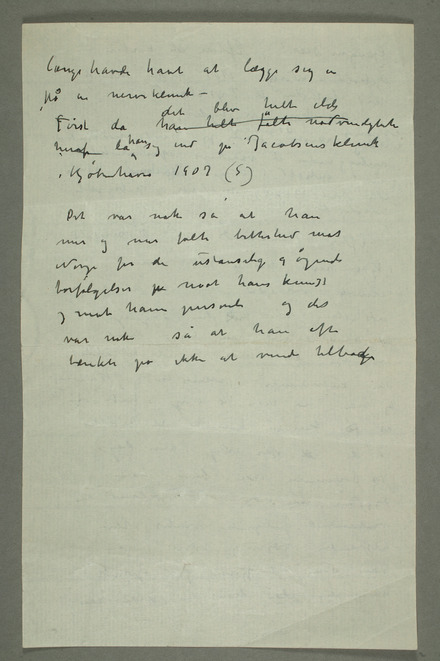 længe havde havt at lægge sig in
på en nerveklinik –
det blev helt
Først da han helte følte nødvendigheten
la han sig ind på Jacobsens klinik
i Kjøbenhavn 1907 (?)
Det var nok så at han
mer og mer følte bitterhed mot
Norge for de ustanselig
forfølgelser på mot hans kunst
og mot ham personlig og det
var nok så at han ofte
tænkte på ikke at vende tilbage